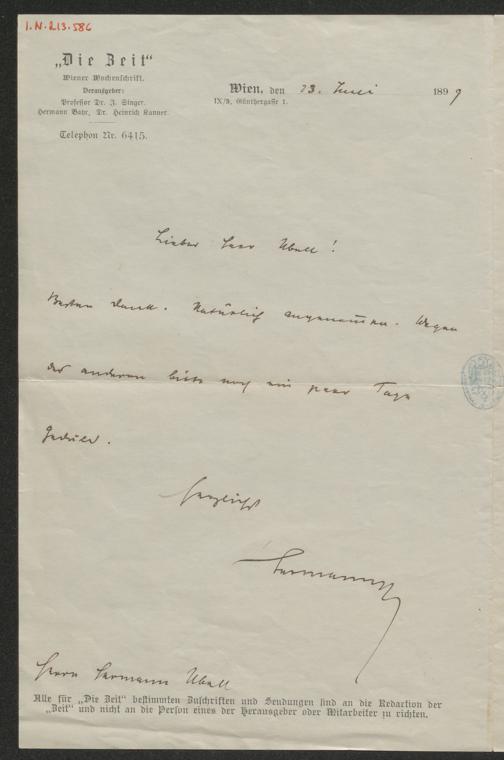 I.N.213.586
„Die Zeit“
Wiener Wochenschrift.
Herausgeber:
Professor Dr. I. Singer.
Hermann Bahr, Dr. Heinrich Kanner.
Telephon Nr. 6415.
Wien, den 23. Juni 1899
IX/3, Günthergasse 1.
Lieber Herr Ubell!
Besten Dank. Natürlich angenommen. Wegen
der anderen bitte noch ein paar Tage
Geduld.
Herzlichst
Hermann
Herrn Hermann Ubell
Alle für „Die Zeit“ bestimmten Zuschriften und Sendungen sind an die Redaction der
„Zeit“ und nicht an die Person eines der Herausgeber oder Mitarbeiter zu richten.